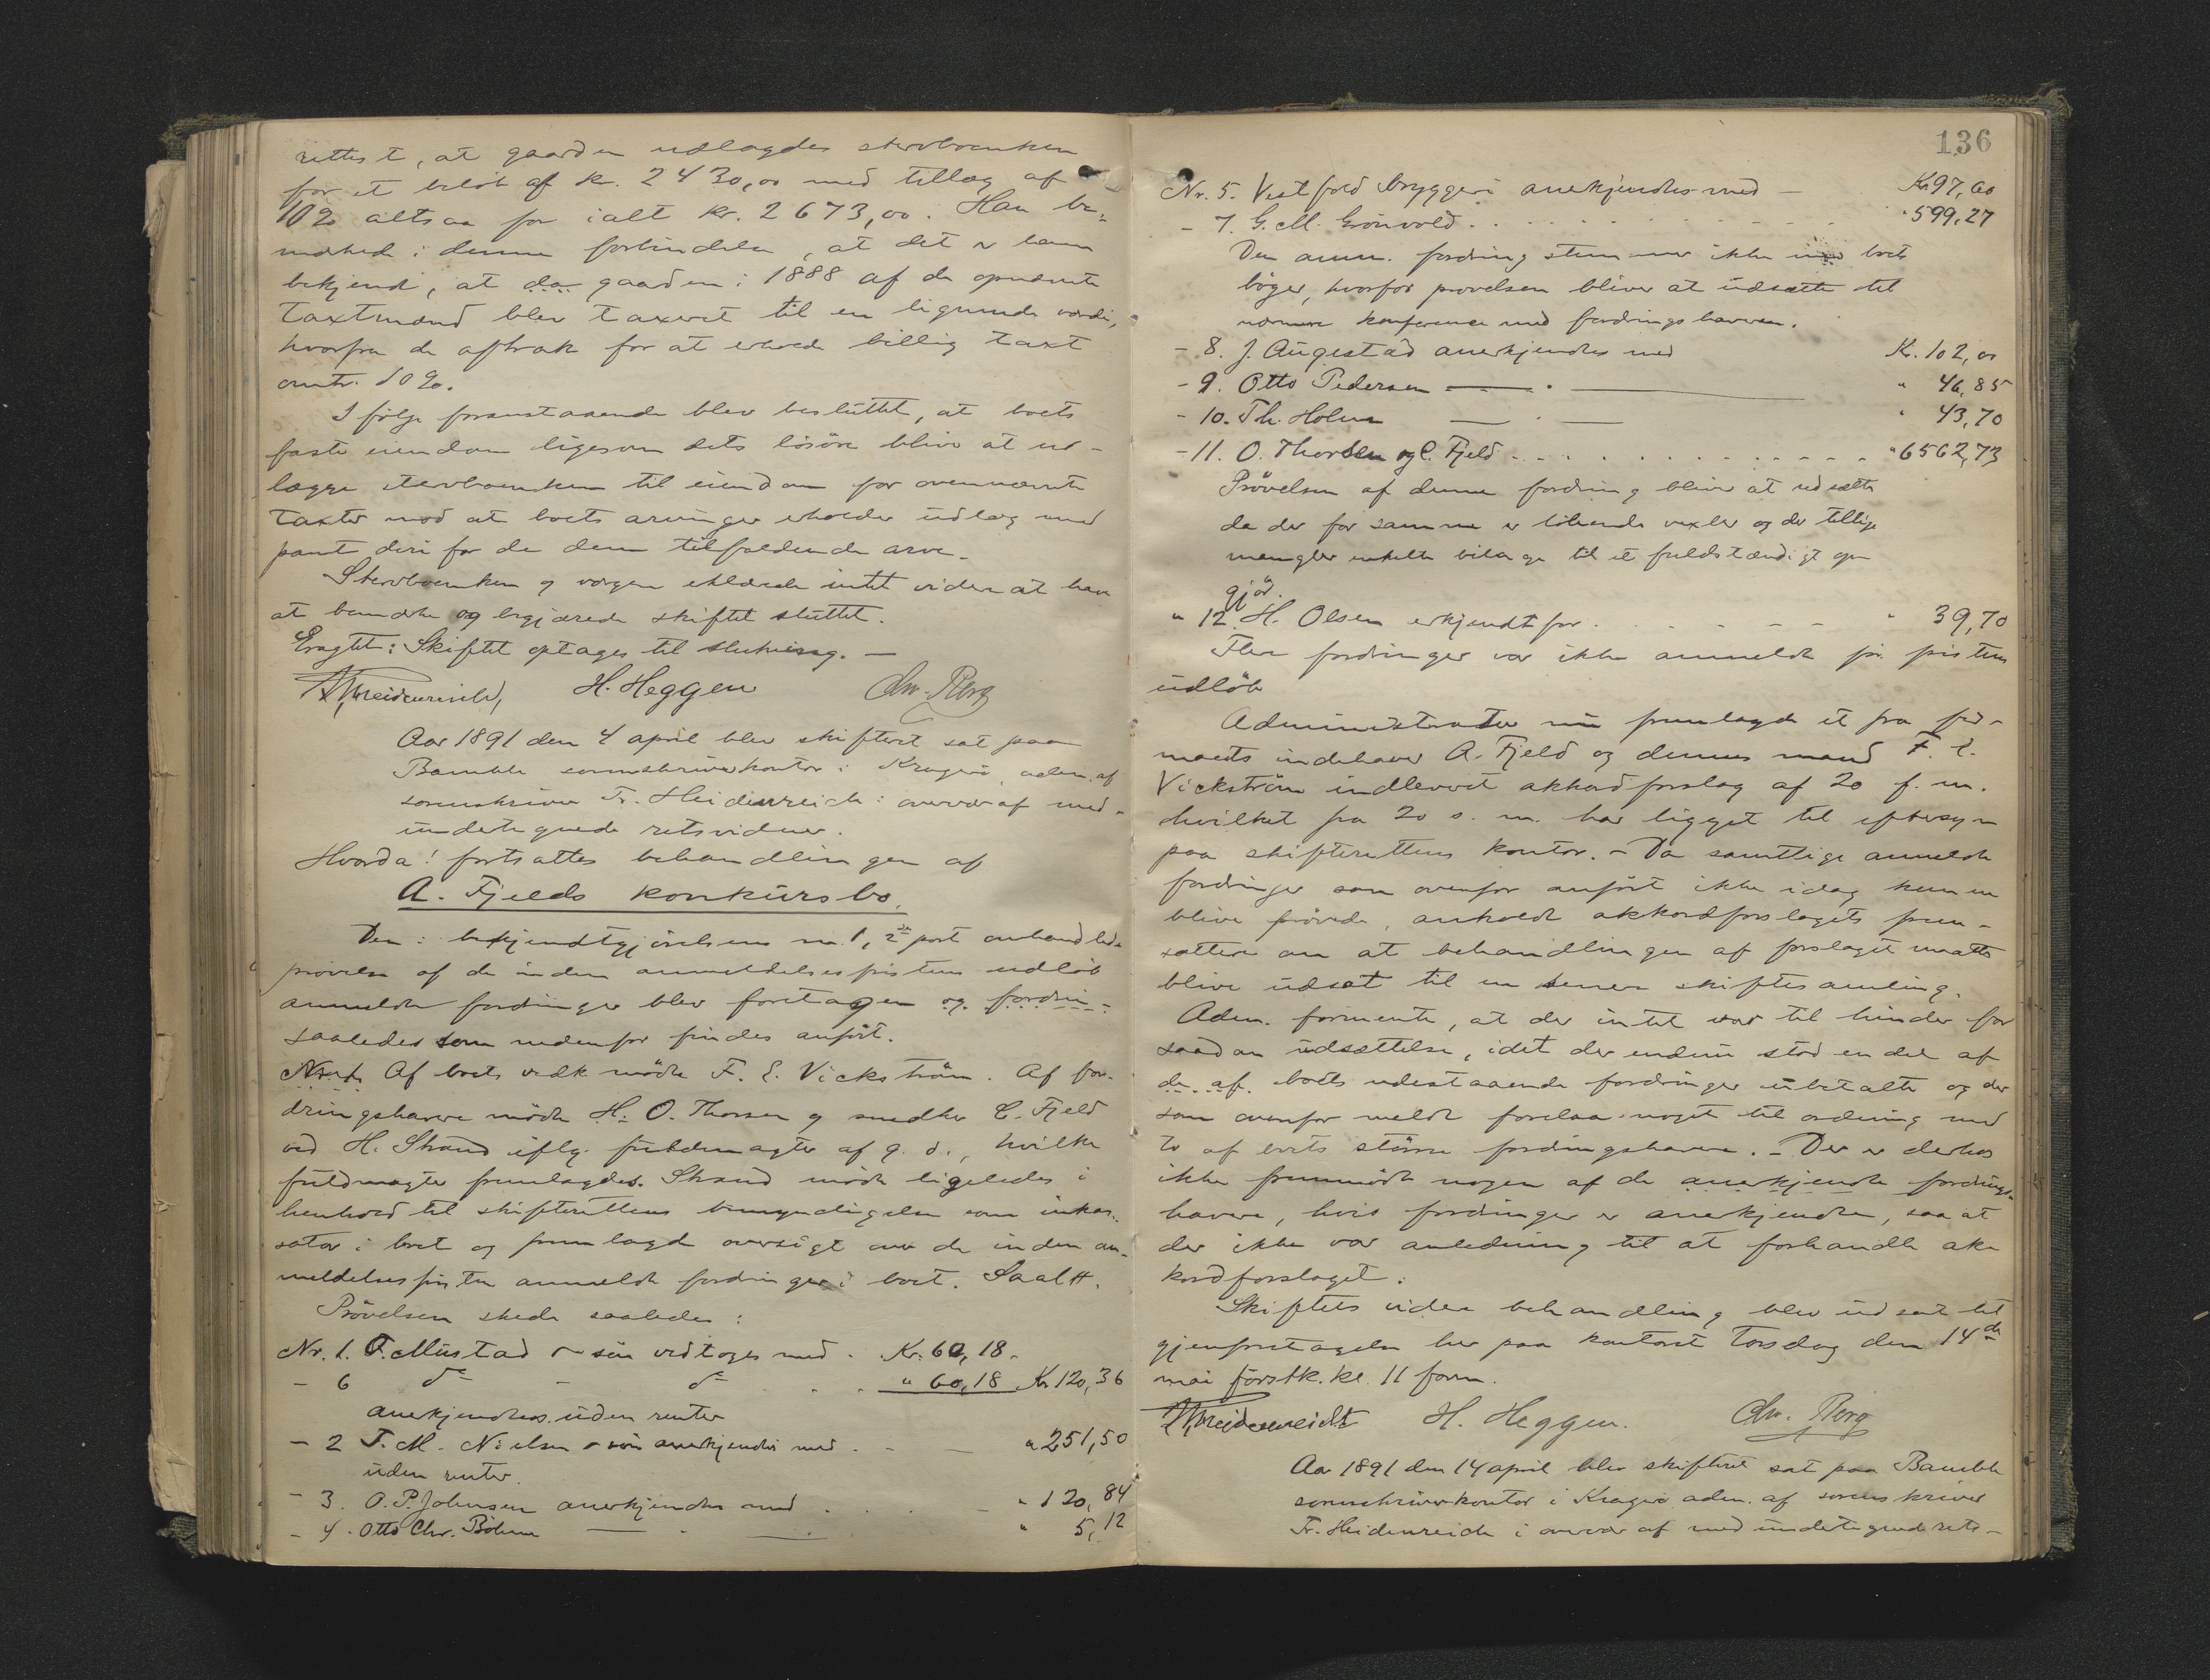 rettest, at gaarden udlagdes stervboenken
for et beløb af kr. 2430,00 med tillæg af
10% altsaa for ialt kr. 2673,00. Han be-
mærkede i denne forbindelse, at det er ham
bekjendt, at da gaarden i 1888 af de opnævnte
taxtmænd blev taxeret til en lignende værdi,
hvorfra de aftrak for at erholde billig taxt
omtr. 10%.
Ifølge foranstaaende blev besluttet, at boets
faste eiendom ligesom dets løsøre bliver at ud-
lægge stervboenken til eiendom for ovennævnte
taxter mod at boets arvinger erholder udlæg med
pant deri for de dem tilfaldende arve.
Stervboenken og værgen erklærede intet videre at have
at bemærke og begjærede skiftet sluttet.
Eragtet: Skiftet optages til slutning. —
Fr. Heidenreich, H. Heggen Chr. Berg
Aar 1891 den 4 april blev skifteret sat paa
Bamble sorenskriverkontor i Kragerø adm. af
sorenskriver Fr. Heidenreich i overvær af med-
undertegnede retsvidner.
Hvorda: fortsattes behandlingen af
A. Fjelds konkursbo.
Den i bekjendtgjørelsens no. 1, 2den post omhandlede
prøvelse af de inden anmeldelsesfristens udløb
anmeldte fordringer blev foretagen og fordrin-
saaledes som nedenfor findes anført.
No. 1. Af boets vedk. mødte F. E. Vickstrøm. Af for-
dringshavere mødte H. O. Thorsen og smedker C. Fjeld
ved H. Strand iflg. fuldmagter af g. d., hvilke
fuldmagter fremlagdes. Strand mødte ligeledes i
henhold til skifterettens bemyndigelse som inkas-
sator i boet og fremlagde oversigt over de inden an-
meldelsesfristen anmeldte fordringer i boet. Saal #.
Prøvelsen skede saaledes:
Nr. 1. O. Mustad & søn vedtoges med . Kr. 60,18.
- 6 do - do . . " 60,18 Kr. 120,36
anerkjendtes uden renter
- 2 T. M. Nielsen & søn anerkjendes med . - — " 251,50
uden renter.
- 3. O. P. Johnsen anerkjendes med . . — " 120,84
- 4. Otto Chr. Bøhme — . — " 5,12
136
Nr. 5. Vestfold bryggeri anerkjendtes med — Kr. 97,60
- 7. G. M. Grønvold . . . . . . " 599,27
Den anm. fordring stemmer ikke med boets
bøger, hvorfor prøvelsen bliver at udsætte til
nærmere konference med fordringshaveren.
- 8. J. Augestad anerkjendes med Kr. 102,00
- 9. Otto Pedersen — . — " 46,85
- 10. Th. Holm — . — " 43,70
- 11. O. Thorsen og C. Fjeld . . . . . . . " 6562,73
Prøvelsen af denne fordring bliver at udsætte
da der for samme er løbende vexler og der tillige
mangler enkelte bilage til et fuldstændigt op-
gjør.
" 12. H. Olsen erkjendt for . . - - - " 39,70
Flere fordringer var ikke anmeldt før fristens
udløb
Administrator nu fremlagde et fra fir-
maets indehaver A. Fjeld og dennes mand F. E.
Vickstrøm indleveret akkordforslag af 20 f. m.
hvilket fra 20 s. m. har ligget til eftersyn
paa skifterettens kontor. - Da samtlige anmeldte
fordringer som ovenfor anført ikke idag kunne
blive prøvede, anholdt akkordforslagets frem-
sættere om at behandlingen af forslaget maatte
blive udsat til en senere skiftesamling.
Adm. formente, at der intet var til hinder for
saadan udsættelse, idet der endnu stod en del af
de af boets udestaaende fordringer ubetalte og der
som ovenfor meldt forelaa noget til ordning med
to af boets større fordringshavere. - Der er derhos
ikke fremmødt nogen af de anerkjendte fordrings-
havere, hvis fordringer er anerkjendte, saa at
der ikke var anledning til at forhandle ak-
kordforslaget.
Skiftets videre behandling blev udsat til
gjenforetagelse her paa kontoret Torsdag den 14de
mai førstk. kl. 11 form.
Fr. Heidenreich H. Heggen. Chr. Berg
Aar 1891 den 14 april blev skifteret sat paa Bamble
sorenskriverkontor i Kragerø adm. af sorenskriver
Fr. Heidenreich i overvær af medundertegnede rets-